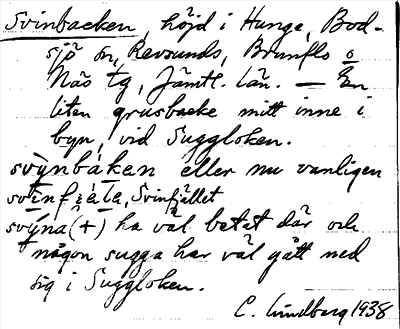 Svinbacken, höjd i Hunge, Bod-
sjö sn, Revsunds, Brunflo o
Näs tg, Jämtl. län. — En
liten grusbacke mitt inne i
byn, vid Suggloken.
svỳnbákɐn eller nu vanligen
Svinfjället
svýna(+) ha väl betat där och
någon sugga har väl gått ned
sig i Suggloken.
C. Lundberg 1938